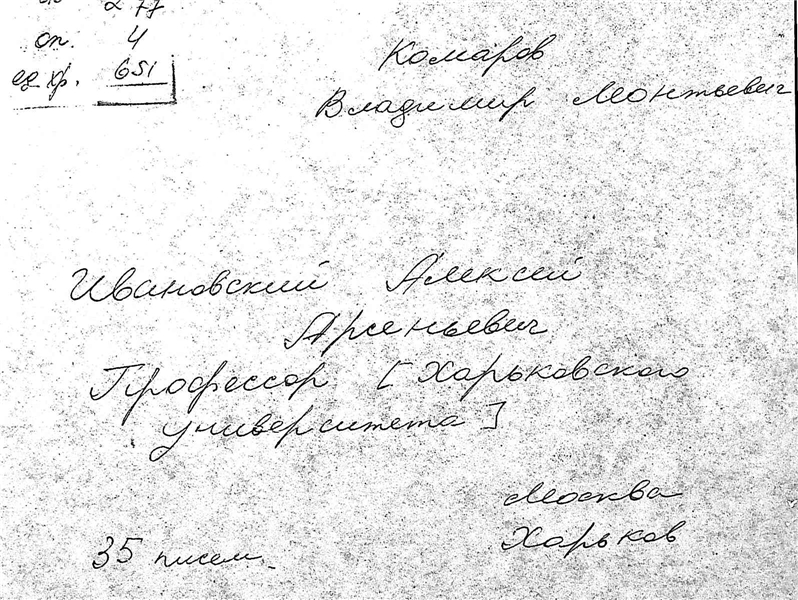 277
оп. 4
ед хр. 651
Комаров
Владимир Леонтьевич
Ивановский Алексей
Арсеньевич
Профессор [Харьковского
университета]
Москва
Харьков
35 писем.